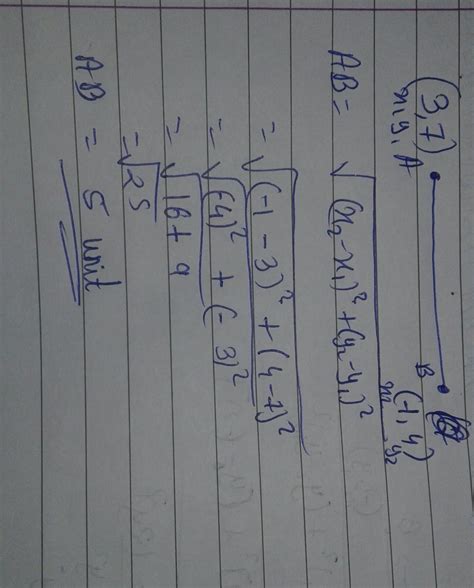 (3,7) A B (-1,4)
x₁y₁ x₂ y₂
AB = √(x₂-x₁)²+(y₂-y₁)²
= √(-1-3)²+(4-7)²
= √(-4)²+(-3)²
= √16+9
= √25
AB = 5 unit